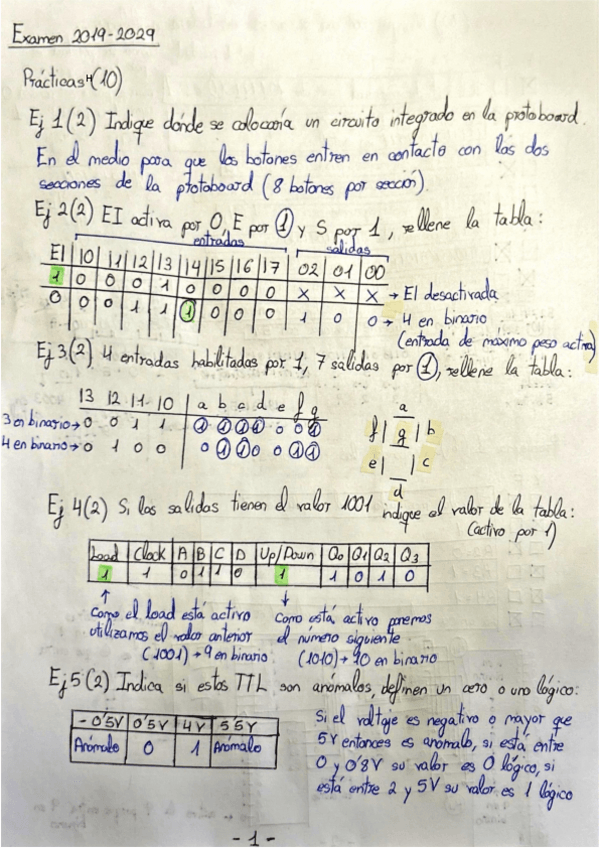 Examen 2019-2029
Prácticas (10)
Ej 1(2) Indique dónde se colocaría un circuito integrado en la protoboard.
En el medio para que los botones entren en contacto con las dos
secciones de la protoboard (8 botones por sección).
Ej 2(2) EI activa por 0, E por 1 y S por 1, rellene la tabla:
entradas salidas
EI 10 11 12 13 14 15 16 17 02 01 00
1 0 0 0 1 0 0 0 0 X X X → EI desactivada
0 0 0 1 1 1 0 0 0 1 0 0 → 4 en binario
(entrada de máximo peso activa)
Ej 3(2) 4 entradas habilitadas por 1, 7 salidas por 1, rellene la tabla:
13 12 11 10 a b c d e f g
3 en binario → 0 0 1 1 1 1 1 1 0 0 1
4 en binario → 0 1 0 0 0 1 1 0 0 1 1
a
f g b
e c
d
Ej 4(2) Si las salidas tienen el valor 1001 indique el valor de la tabla:
(activo por 1)
Load Clock A B C D Up/Down Q0 Q1 Q2 Q3
1 1 0 1 1 0 1 1 0 1 0
↑ ↓
Como el load está activo como está activo ponemos
utilizamos el valor anterior el número siguiente
(1001) → 9 en binario (1010) → 10 en binario
Ej 5(2) Indica si estos TTL son anómalos, definen un cero o uno lógico:
-0'5V 0'5V 4V 5'5V
Anómalo 0 1 Anómalo
Si el voltaje es negativo o mayor que
5V entonces es anómalo, si está entre
0 y 0'8V su valor es 0 lógico, si
está entre 2 y 5V su valor es 1 lógico
- 1 -